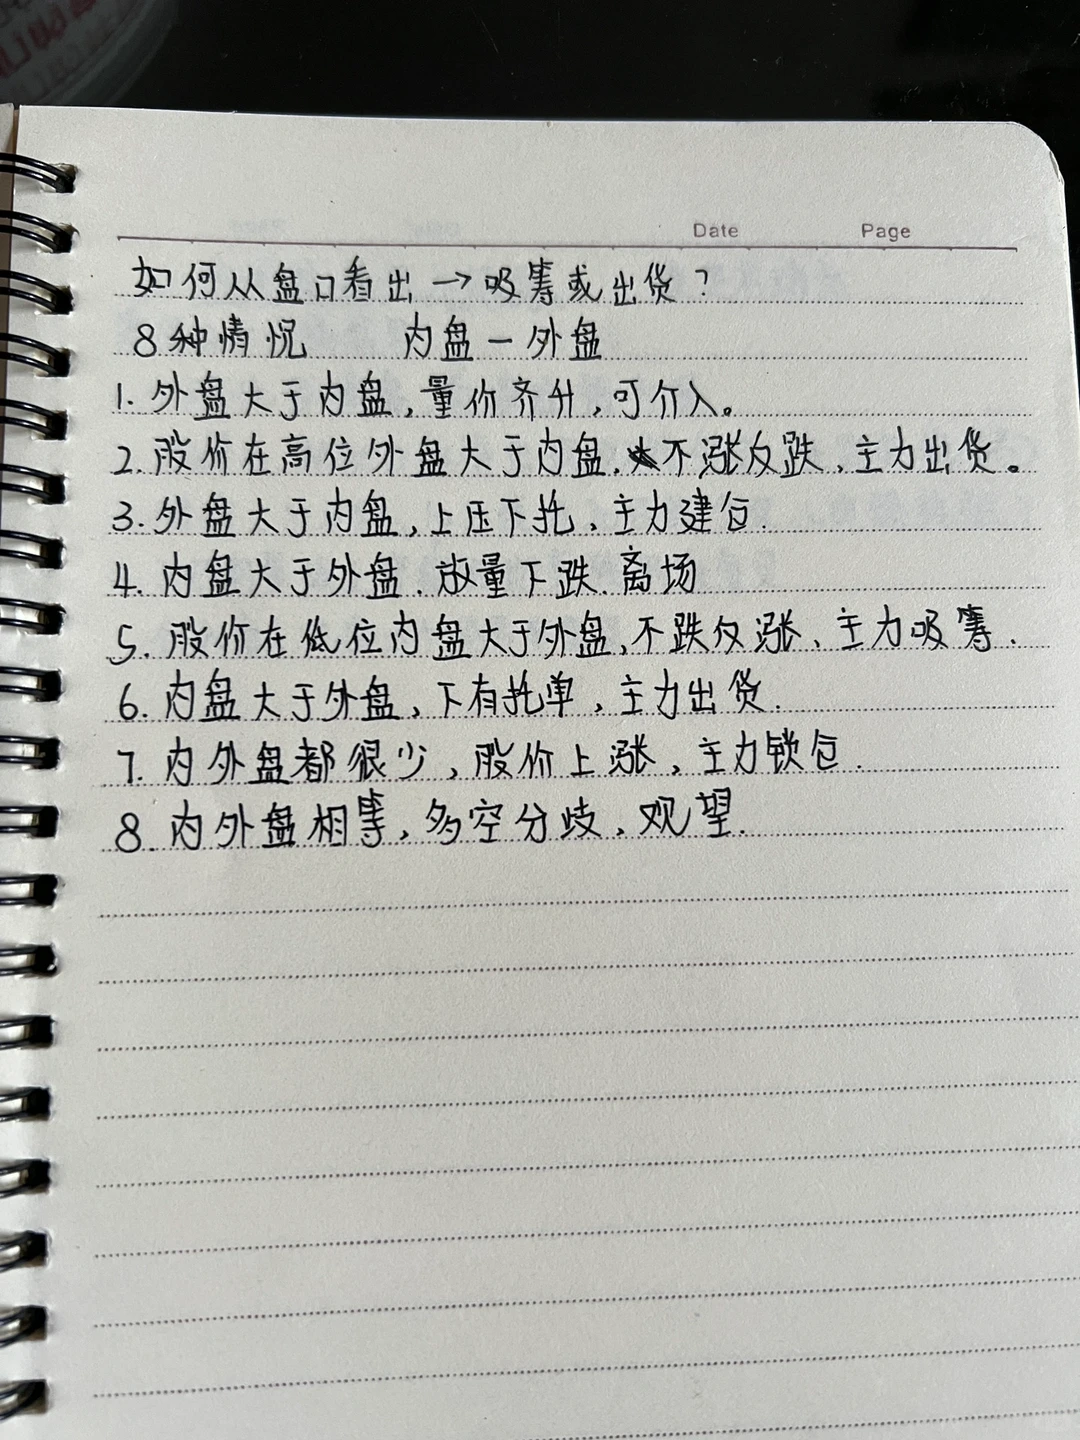 Date Page
如何从盘口看出→吸筹或出货?
8种情况 内盘-外盘
1.外盘大于内盘,量价齐升,可介入。
2.股价在高位外盘大于内盘,不涨反跌,主力出货。
3.外盘大于内盘,上压下托,主力建仓.
4.内盘大于外盘.放量下跌.离场
5.股价在低位内盘大于外盘,不跌反涨,主力吸筹.
6.内盘大于外盘,下有托单,主力出货.
7.内外盘都很少,股价上涨,主力锁仓.
8.内外盘相等,多空分歧,观望.